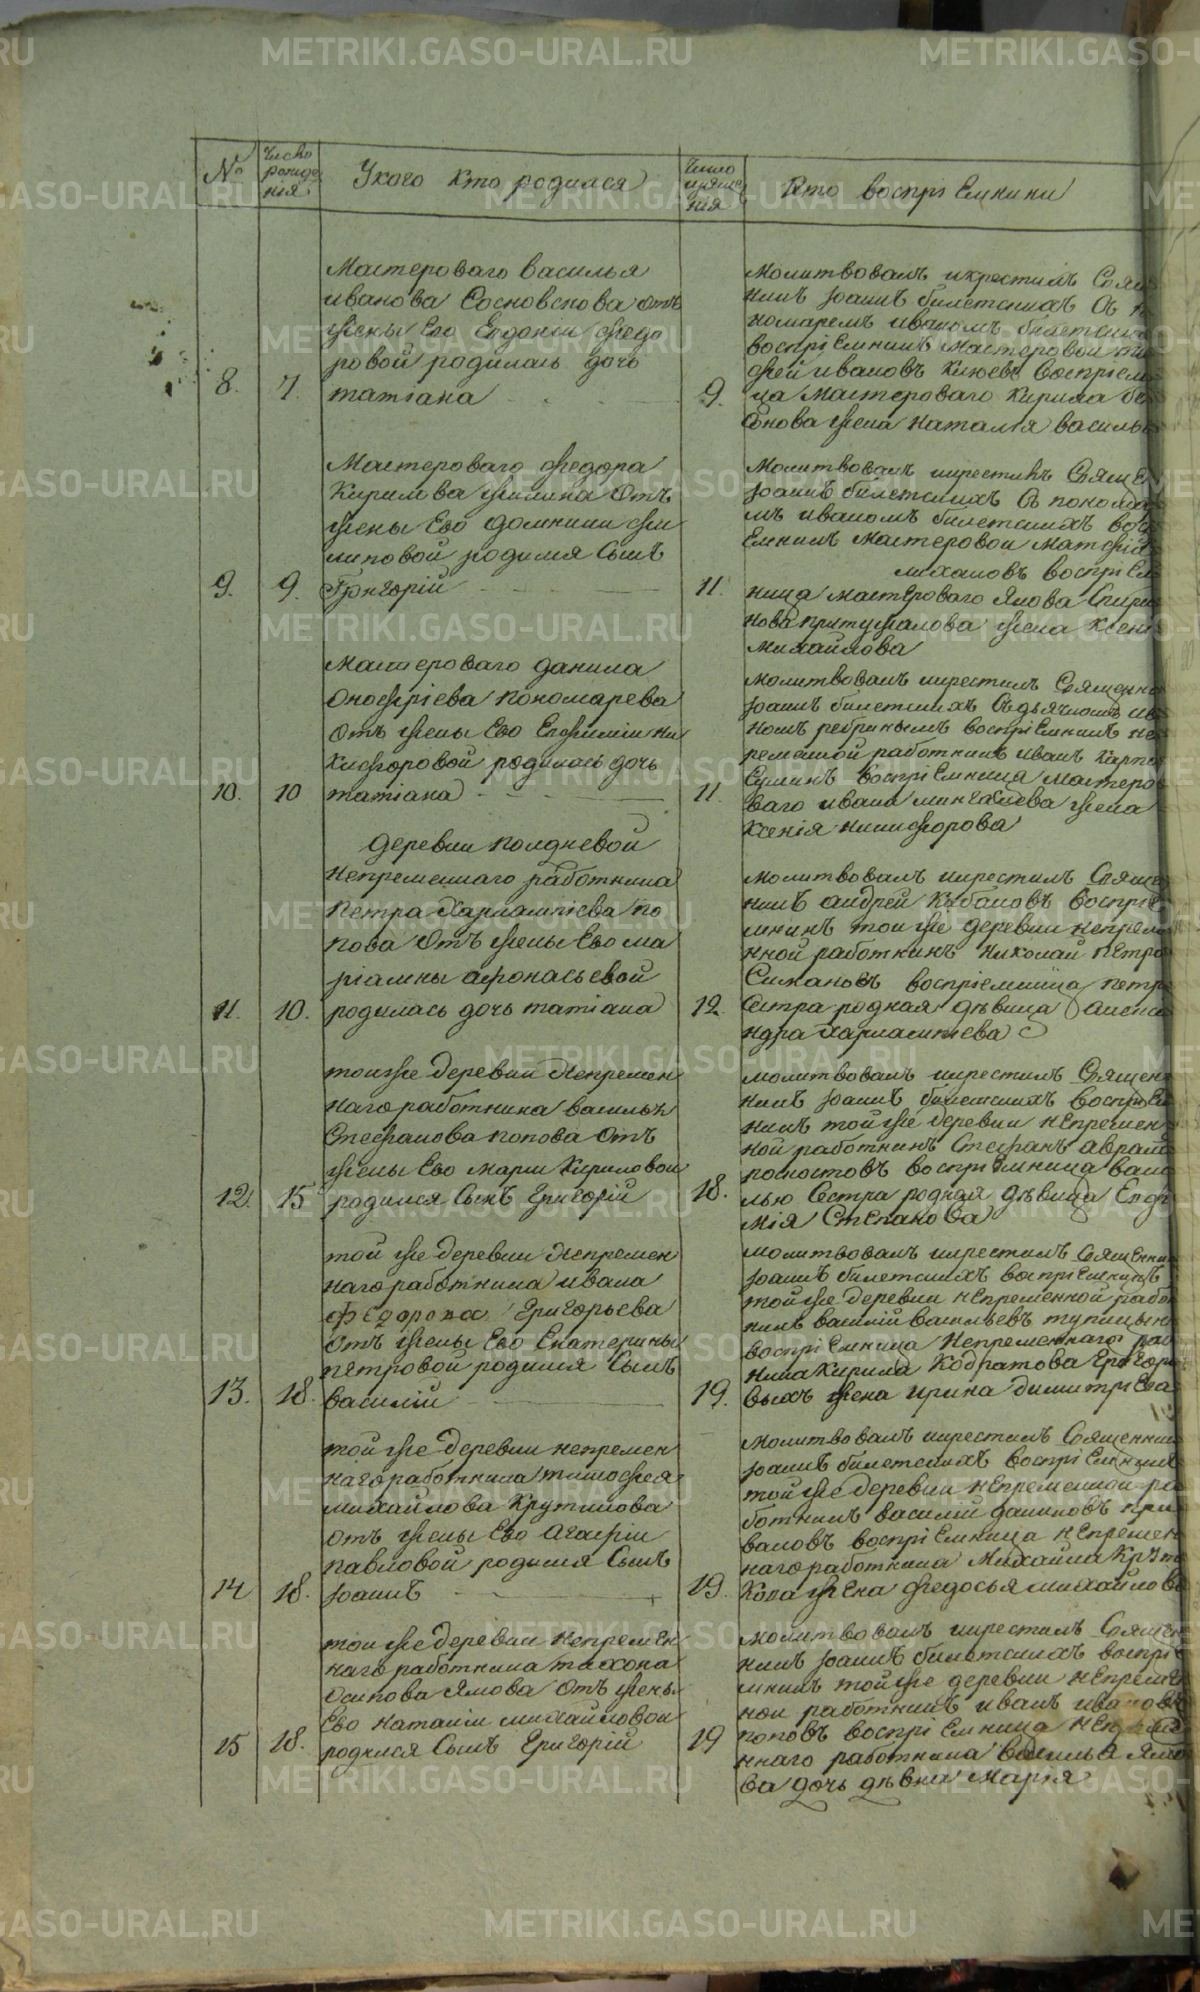 №
Число
рожде
нія
Укого кто родился
Число
крище
нія
Кто воспріемники
8.
7.
Мастероваго василья
иванова Сосновскова отъ
жены Ево Евдокіи федо
ровой родилась дочь
татіана
9.
молитвовалъ икрестилъ Свящ
никъ Іоаннъ билетскихъ Съ п
номаремъ иваномъ билетски
воспріемникъ мастеровой ти
фей ивановъ Клюевъ воспріем
ца мастероваго Кирила
жена наталія василь
9.
9.
Мастероваго федора
Кирилова жилина отъ
жены Ево домники фи
липовой родился Сынъ
Григорій
11.
молитвовалъ икрестилъ Свящ
Іоаннъ билетскихъ Съ понома
мъ иваномъ билетскихъ во
Емникъ мастеровой матфей
михаловъ воспріем
ница мастероваго Якова Спири
нова притужалова жена Ксенія
михайлова
10.
10
мастероваго данила
онофріева пономарева
отъ жены Ево Евфиміи ни
кифоровой родилась дочь
татіана
11.
молитвовалъ икрестилъ Священни
Іоаннъ билетскихъ Съ дьячкомъ ив
номъ ребринымъ воспріемникъ не
ременной работникъ иванъ Карпо
воспріемница мастеро
ваго ивана мингалева жена
Ксенія никифорова
11.
10.
деревни полдневой
непременнаго работника
Петра Харлампіева по
пова отъ жены Ево ма
ріанны афонасьевой
родилась дочь татіана
12.
молитвовалъ икрестилъ Свяще
никъ андрей Кабаловъ воспріе
мникъ тоиже деревни непреме
нной работникъ николай Петро
Симановъ воспріемница петра
Сестра родная девица Алекса
ндра Харлампіева
12.
15
тоиже деревни Непремен
наго работника василья
Стефанова попова отъ
жены Ево марьи Кириловой
родился Сынъ Григорій
18.
молитвовалъ икрестилъ Священ
никъ Іоаннъ билетскихъ воспріем
никъ тойже деревни непремен
ной работникъ Стефанъ аврам
воспріемница васи
лью Сестра родная девица Евфи
мія Степанова
13.
18.
той же деревни Непремен
наго работника ивана
Федорова Григорьева
отъ жены Ево Екатерины
петровой родился Сынъ
василій
19.
молитвовалъ икрестилъ Священни
Іоаннъ билетскихъ воспріемникъ
тойже деревни непременной рабо
никъ василій васильевъ тупицын
воспріемница Непременнаго ра
ника Кирила Кодратова Григорь
выхъ жена ирина димитріева
14
18.
той же деревни непремен
наго работника тимофея
михайлова Крутикова
отъ жены Ево Агафіи
павловой родился Сынъ
Іоаннъ
19.
молитвовалъ икрестилъ Священник
Іоаннъ билетскихъ воспріемник
той же деревни непременной ра
ботникъ василій даниловъ при
валовъ воспріемница непремен
наго работника Михаила Крути
Кова жена федосья михайлова
15
18.
тоиже деревни непремен
наго работника тихона
осипова Якова отъ жены
Ево наталіи михайловой
родился Сынъ Григорій
19
молитвовалъ икрестилъ Священ
никъ Іоаннъ билетскихъ воспріе
мникъ тойже деревни непреме
ной работникъ иванъ ивановъ
поповъ воспріемница непреме
ннаго работника василья Яко
ва дочь девка Марія
METRIKI.GASO-URAL.RU